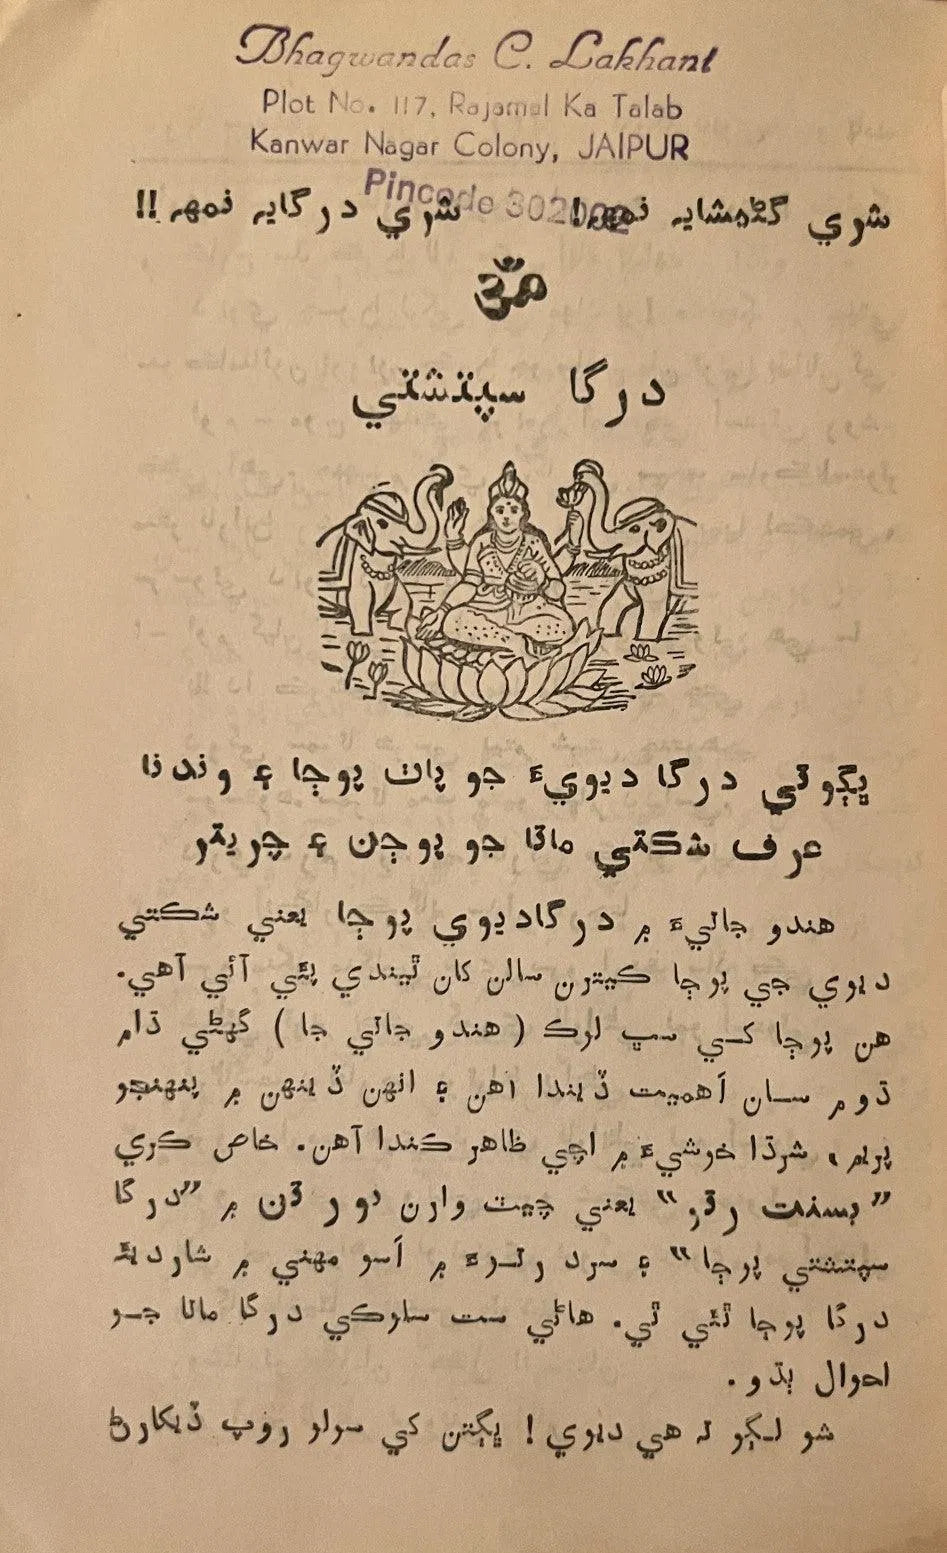 Bhagwandas C. Lakhani
Plot No. 117, Rajamal Ka Talab
Kanwar Nagar Colony, JAIPUR
Pincode 302002
شري گڻيشايہ نمهہ! شري درگايہ نمهہ!!
ॐ
درگا سپتشتي
ڀڳوتي درگا ديويءَ جو پاٺ پوڄا ۽ وندنا
عرف شڪتي ماتا جو پوڄن ۽ چريتر
هندو ڄاتيءَ ۾ درگاديوي پوڄا يعني شڪتي
ديوي جي پوڄا ڪيترن سالن کان ٿيندي پئي آئي آهي.
هن پوڄا کسي سڀ لوڪ ( هندو ڄاتي جا ) گهڻي ڌام
ڌوم سان اَهميت ڏيندا آهن ۽ انهن ڏينهن ۾ پنهنجو
پريم، شرڌا خوشيءَ ۾ اچي ظاهر ڪندا آهن. خاص ڪري
”بسنت رتو“ يعني چيٽ وارن نورتن ۾ ”درگا
سپتشتي پوڄا“ ۽ سرد رتوءَ ۾ اَسو مهني ۾ شارديہ
درگا پوڄا ٿئي ٿي. هاڻي ست سلوڪي درگا ماتا جو
احوال ٻڌو.
شو لڳو تہ هي ديوي! ڀڳتن کي سولو روپ ڏيکارڻ